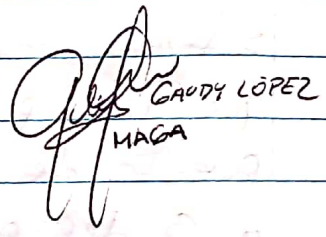 GAUDY LÓPEZ
MAGA